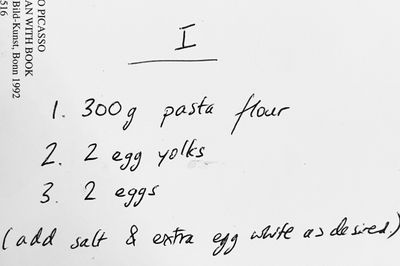 O PICASSO
AN WITH BOOK
Bild-Kunst, Bonn 1992
516
I
1. 300g pasta flour
2. 2 egg yolks
3. 2 eggs
(add salt & extra egg white as desired)